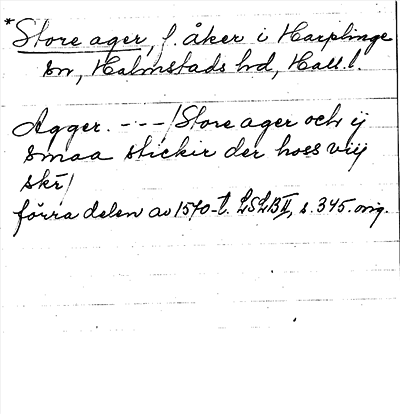 *Store ager, f. åker i Harplinge
sn, Halmstads hd, Hall. l.
Agger. ---/Store ager och ij
smaa stickir der hoss viij
skr/
förra delen av 1570-t. LSLBII, s. 345. orig.